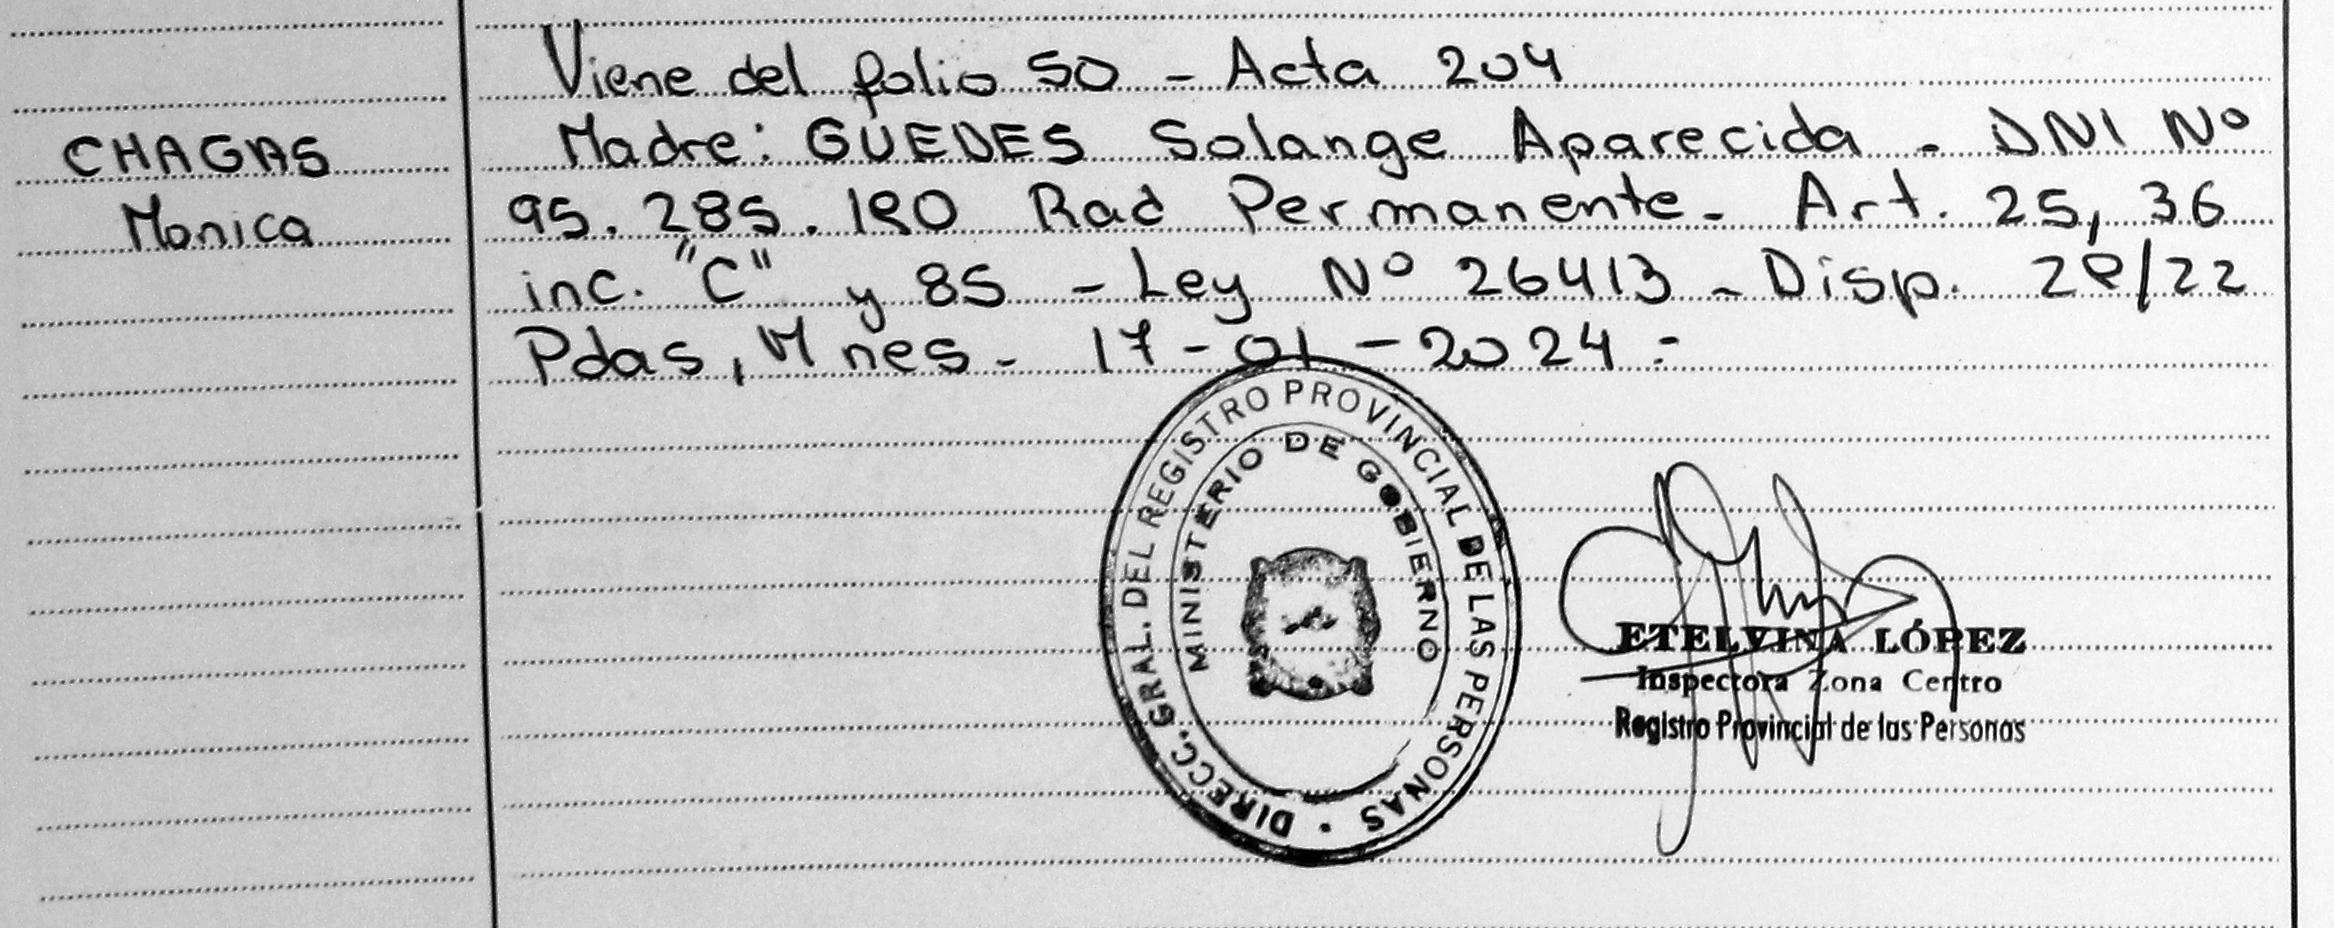 Viene del folio 50 - Acta 204
CHAGAS
Madre: GUEDES Solange Aparecida - DNI Nº
Monica
95.285.180 Rad Permanente - Art. 25, 36
inc. "C" y 85 - Ley Nº 26413 - Disp. 28/22
Pdas, Mnes - 17-01-2024 -
DIRECC. GRAL. DEL REGISTRO PROVINCIAL DE LAS PERSONAS •
MINISTERIO DE GOBIERNO
ETELVINA LÓPEZ
Inspectora Zona Centro
Registro Provincial de las Personas